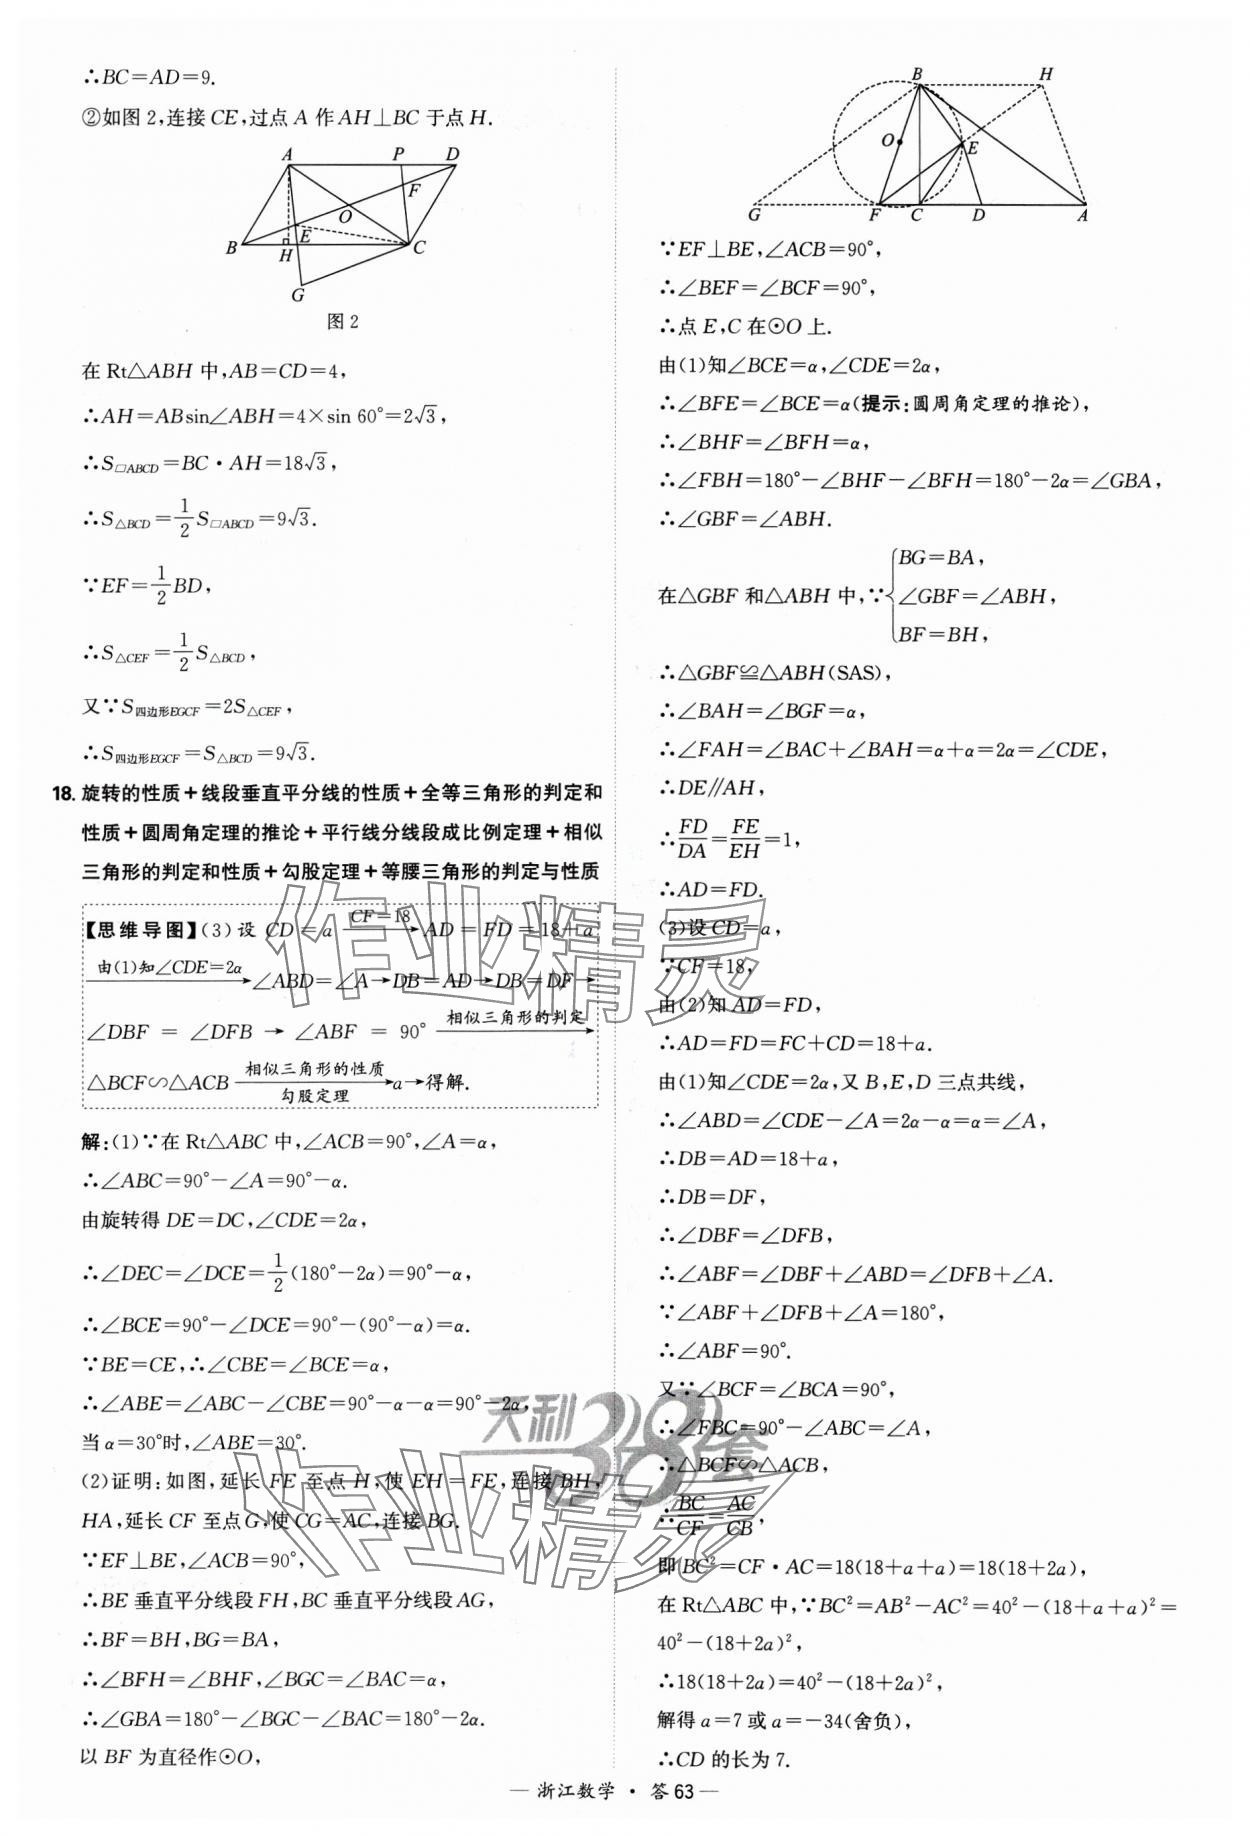 ∴BC=AD=9.
②如图2,连接CE,过点A作AH⊥BC于点H.
A
P
D
F
O
E
B
H
C
G
图2
在Rt△ABH中,AB=CD=4,
∴AH=ABsin∠ABH=4×sin 60°=2√3,
∴S▱ABCD=BC·AH=18√3,
∴S△BCD=1/2 S▱ABCD=9√3.
∵EF=1/2 BD,
∴S△CEF=1/2 S△BCD,
又∵S四边形EGCF=2S△CEF,
∴S四边形EGCF=S△BCD=9√3.
18. 旋转的性质+线段垂直平分线的性质+全等三角形的判定和
性质+圆周角定理的推论+平行线分线段成比例定理+相似
三角形的判定和性质+勾股定理+等腰三角形的判定与性质
【思维导图】(3)设 CD=a —CF=18→ AD=FD=18+a
—由(1)知∠CDE=2α→∠ABD=∠A→DB=AD→DB=DF→
∠DBF = ∠DFB → ∠ABF = 90° —相似三角形的判定→
△BCF∽△ACB —相似三角形的性质 勾股定理→a→得解.
解:(1)∵在Rt△ABC中,∠ACB=90°,∠A=α,
∴∠ABC=90°-∠A=90°-α.
由旋转得DE=DC,∠CDE=2α,
∴∠DEC=∠DCE=1/2(180°-2α)=90°-α,
∴∠BCE=90°-∠DCE=90°-(90°-α)=α.
∵BE=CE,∴∠CBE=∠BCE=α,
∴∠ABE=∠ABC-∠CBE=90°-α-α=90°-2α,
当α=30°时,∠ABE=30°.
(2)证明:如图,延长FE至点H,使EH=FE,连接BH,
HA,延长CF至点G,使CG=AC,连接BG.
∵EF⊥BE,∠ACB=90°,
∴BE垂直平分线段FH,BC垂直平分线段AG,
∴BF=BH,BG=BA,
∴∠BFH=∠BHF,∠BGC=∠BAC=α,
∴∠GBA=180°-∠BGC-∠BAC=180°-2α.
以BF为直径作⊙O,
B
H
O
E
G
F
C
D
A
∵EF⊥BE,∠ACB=90°,
∴∠BEF=∠BCF=90°,
∴点E,C在⊙O上.
由(1)知∠BCE=α,∠CDE=2α,
∴∠BFE=∠BCE=α(提示:圆周角定理的推论),
∴∠BHF=∠BFH=α,
∴∠FBH=180°-∠BHF-∠BFH=180°-2α=∠GBA,
∴∠GBF=∠ABH.
在△GBF和△ABH中,∵{BG=BA,
∠GBF=∠ABH,
BF=BH,
∴△GBF≌△ABH(SAS),
∴∠BAH=∠BGF=α,
∴∠FAH=∠BAC+∠BAH=α+α=2α=∠CDE,
∴DE∥AH,
∴FD/DA=FE/EH=1,
∴AD=FD.
(3)设CD=a,
∵CF=18,
由(2)知AD=FD,
∴AD=FD=FC+CD=18+a.
由(1)知∠CDE=2α,又B,E,D三点共线,
∴∠ABD=∠CDE-∠A=2α-α=α=∠A,
∴DB=AD=18+a,
∴DB=DF,
∴∠DBF=∠DFB,
∴∠ABF=∠DBF+∠ABD=∠DFB+∠A.
∵∠ABF+∠DFB+∠A=180°,
∴∠ABF=90°.
又∵∠BCF=∠BCA=90°,
∴∠FBC=90°-∠ABC=∠A,
∴△BCF∽△ACB,
∵BC/CF=AC/CB,
即BC²=CF·AC=18(18+a+a)=18(18+2a),
在Rt△ABC中,∵BC²=AB²-AC²=40²-(18+a+a)²=
40²-(18+2a)²,
∴18(18+2a)=40²-(18+2a)²,
解得a=7或a=-34(舍负),
∴CD的长为7.
作业精灵
天利38套
作业精灵
— 浙江数学 · 答63 —